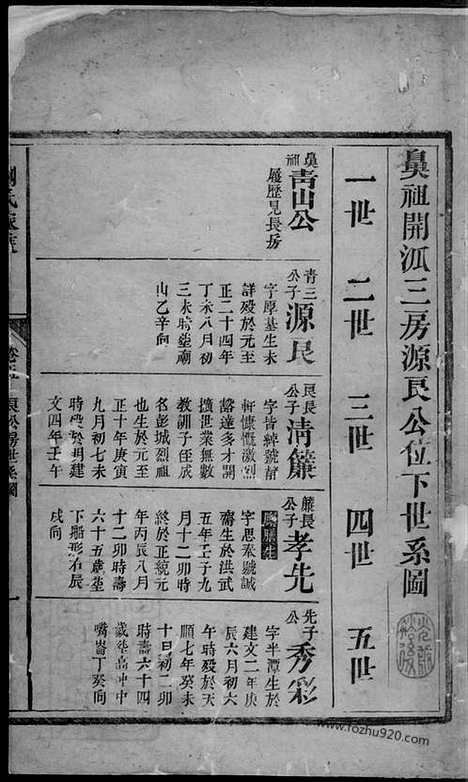 鼻祖開泒三房源民公位下世系圖
一世 二世 三世 四世 五世
鼻祖
青山公
履歷見長房
青三公子
源民
字厚基生未
詳歿於元至
正二十四年
丁未八月初
三未時塟廟
山乙辛向
民長公子
清簾
字皆綽號帮
軒慷慨激烈
豁達多才開
擴世業無數
教訓子侄成
名彭城烈祖
也生於元至
正十年庚寅
九月初七未
時歿於明建
文四年壬午
簾長公子
孝先
生
字思奉號誠
齋生於洪武
五年壬子九
月十二卯時
終於正統元
年丙辰八月
十二卯時壽
六十五歲塟
下形石辰
戌向
先子公
秀彩
字半潭生於
建文二年庚
辰六月初六
午時歿於天
順七年癸未
十月初二卯
時壽六十四
歲塟高冲中
嘴崙丁癸向
一
www.fozhu920.com